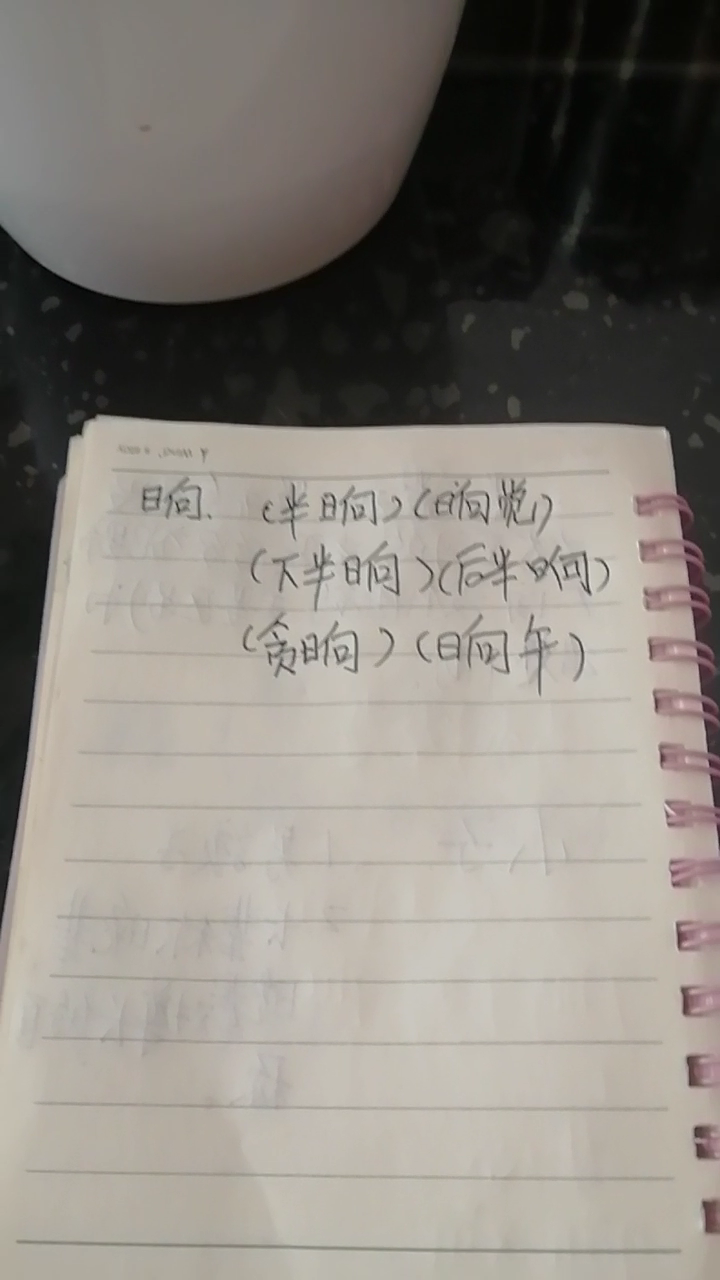 晌、(半晌)(晌觉)
(下半晌)(后半晌)
(贪晌)(晌午)